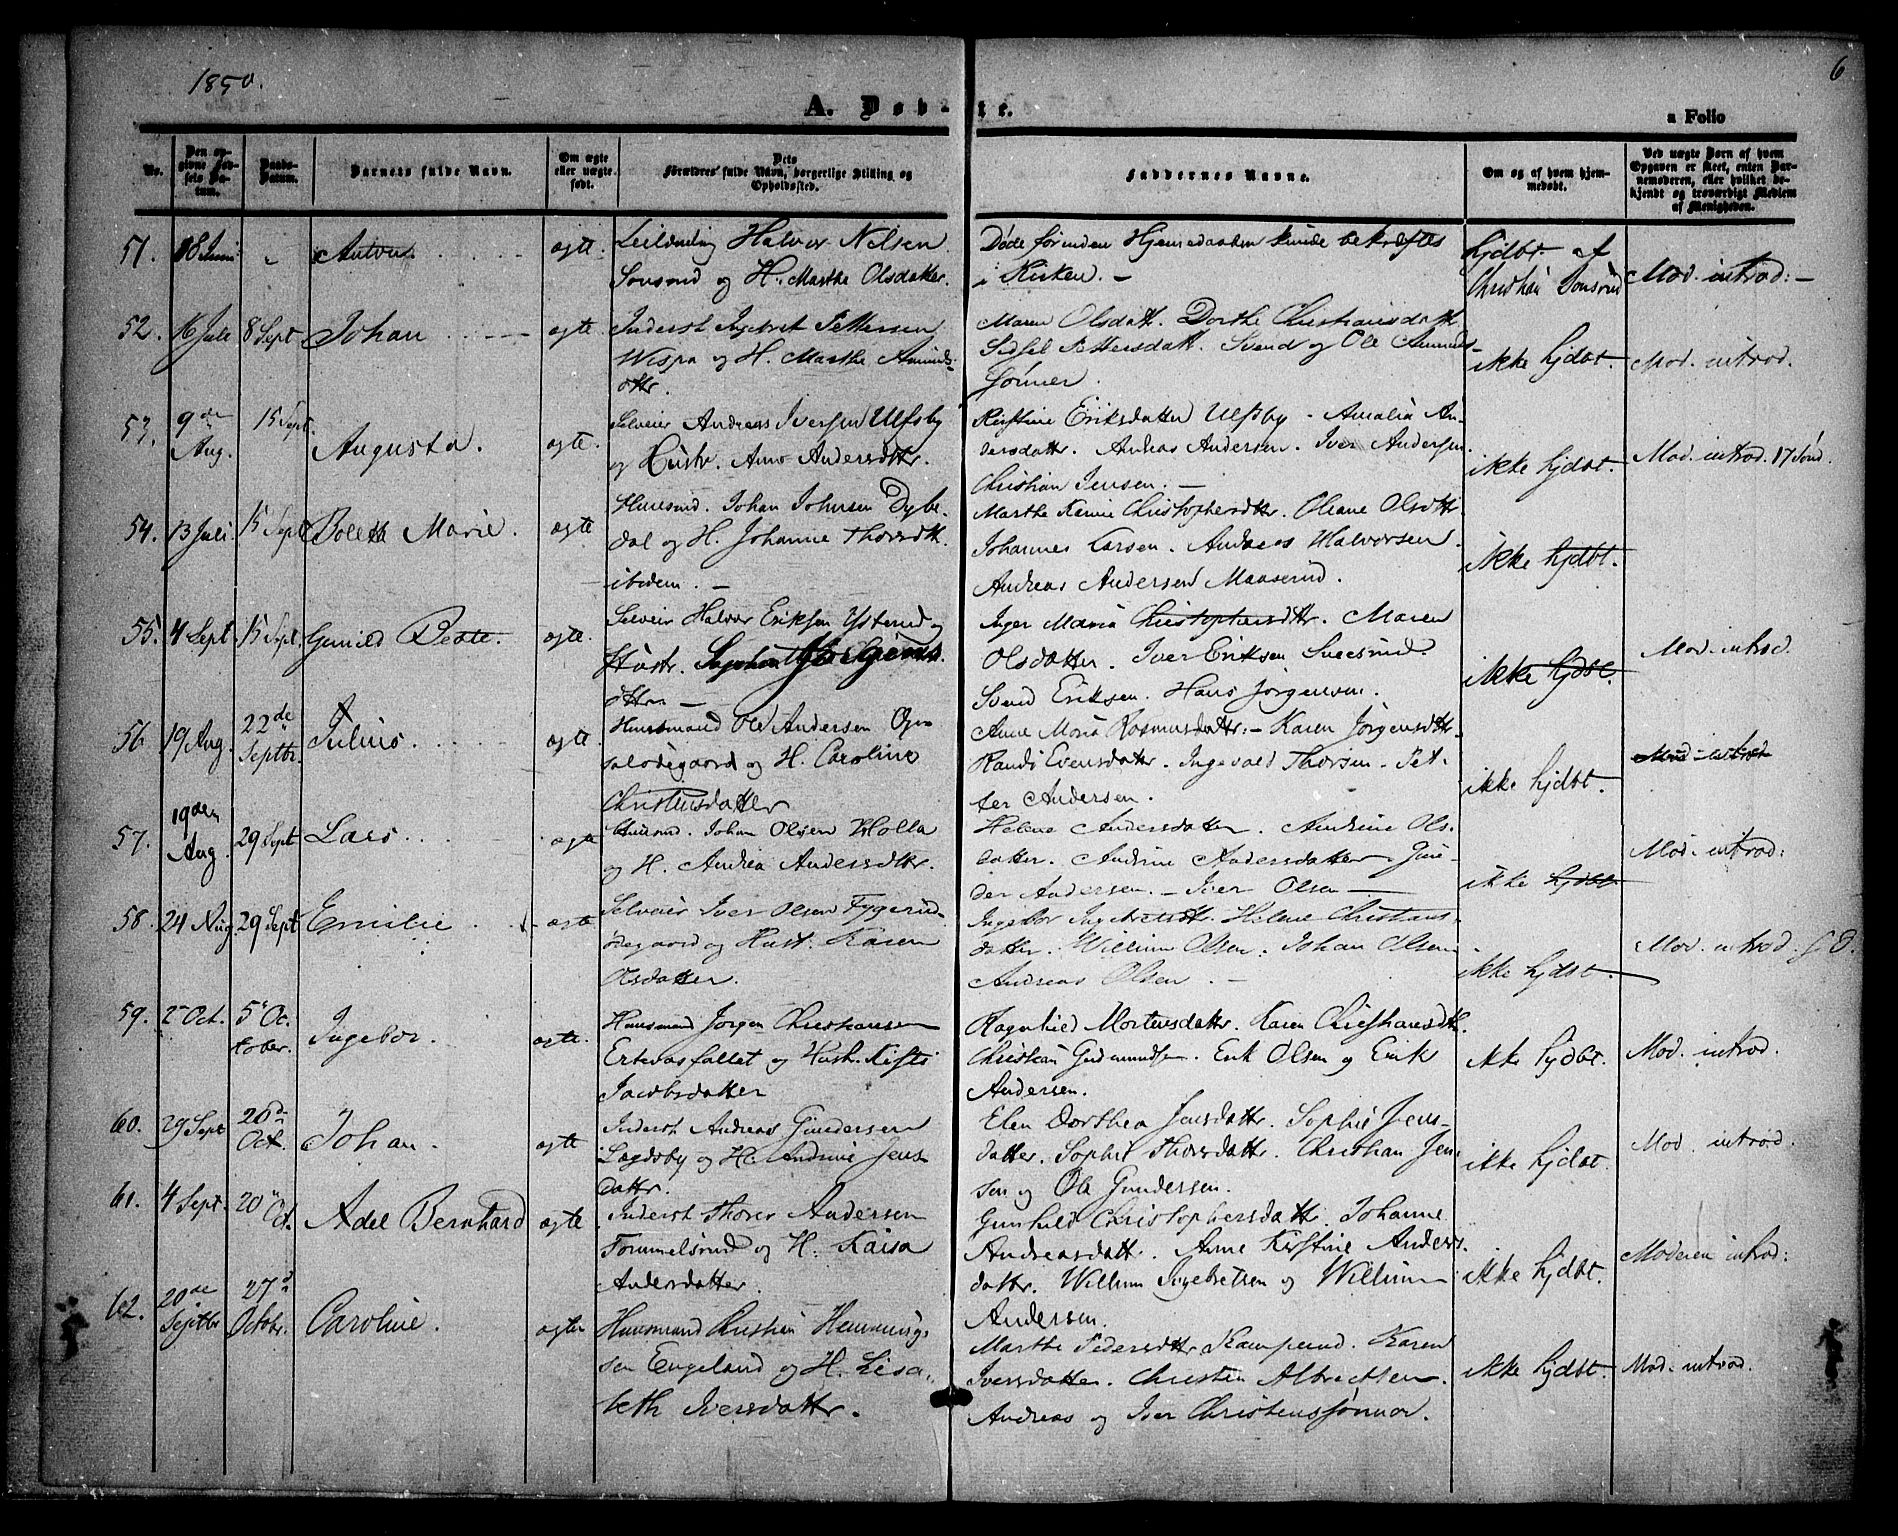 1850.
6
A. Døbte.
a Folio
No.
Den opgivne Fødsels Datum.
Daabs-Datum.
Barnets fulde Navn.
Om ægte eller uægte født.
Dets Forældres fulde Navn, borgerlige Stilling og Opholdssted.
Faddernes Navne.
Om og af hvem hjemmedøbt.
Ved uægte Børn af hvem Opgaven er skeet, enten Barnemoderen, eller hvilket bekjendt og troværdigt Medlem af Menigheden.
51. 18 Juni - ægte. Halvor Nilsen
og H. Marthe Olsdatter.
Døde førinden Hjemmedaaben kunde bekræftes
i Kirken. -
hjdbt. af
Christian
Mod. introd: -
52. 16 Juli 8 Sept Johan ægte. Inderst Ingebret Pettersen
Wispa og H. Marthe Amunds-
dttr.
Maren Olsdatt. Dorthe Christiansdatt.
Sidsel Pettersdatt. Svend og Ole Amunds-
sønner.
ikke hjdbt.
Mod. introd.
53. 9de Aug. 15 Sept. Augusta. ægte. Selveier Andreas Iversen Ulfsby
og Hustr. Anne Andersdttr.
Kirstine Eriksdatter Ulfsby - Amalia An-
dersdatt. Andreas Andersen. Iver Andersen
Christian Jensen. -
ikke hjdbt.
Mod. introd. 17
54. 13 Juli 15 Sept Boletta Marie. ægte Huusmd. Johan Johnsen Dybe-
dal og H. Johanne Thorsdtt.
ibidem. -
Marthe Karine Christophersdttr. Oliane Olsdttr
Johannes Larsen. Andreas Halvorsen.
Andreas Andersen
ikke hjdbt.
55. 4 Sept 15 Sept. Gunild Beate. ægte. Selveir Halvor Eriksen Ysterud og
Hustr.
dttr. -
Inger Maria Christophersdttr. Maren
Olsdatter. Iver Eriksen
Svend Eriksen. Hans Jørgensen.
ikke hjdbt.
Mod. introd.
56 19 Aug. 22de Septbr. Julius. ægte. Huusmand Ole Andersen
og H. Caroline
Christensdatter
Anne Maria Rasmusdattr: - Karen Jörgensdttr.
Randi Evensdattr. Ingevald Thorsen. Pet-
ter Andersen.
ikke hjdbt.
Mod. introd
57. 19den Aug. 29 Sept Lars ægte Huusmd. Johan Olsen Holla
og H. Andrea Andersdttr.
Helene Andersdatter. Andrine Ols-
datter. Andrine Andersdatter. Gun-
der Andersen. - Iver Olsen -
ikke hjdbt.
Mod. introd:
58. 24 Aug. 29 Sept Emilie ægte Selveier Iver Olsen
ødegaard og Hust. Karen
Olsdatter.
Ingebor Ingebretsdtr. Helene Christians-
datter. Willium Olsen. Johan Olsen
Andreas Olsen. -
ikke hjdbt.
Mod. introd.
59. 2 Oct. 5 Oc-
tober. Ingebor. ægte. Huusmand Jörgen Christiansen
og Hust. Kisti
Jacobsdatter
Ragnhild Mortensdattr. Karen Christiansdtt.
Christian Gudmundsen. Erik Olsen og Erik
Andersen.
ikke hjdbt.
Mod. introd.
60. 29 Sept 20de Oct. Johan. ægte Inderst Andreas Gundersen
Lagdsby og H. Andrine Jens
dattr.
Elen Dorthea Jensdattr. Sophie Jens-
datter. Sophie Thorsdattr. Christian Jen-
sen og Ole Gundersen.
ikke hjdbt.
Mod. introd.
61. 4 Sept. 20 Oct. Adel Bernhard ægte Inderst Thorer Andersen
Tommelsrud og H. Kaisa
Andersdatter.
Gunhild Christophersdattr. Johanne
Andreasdatt. Anne Kirstine Anders-
dattr. Willium Ingebretsen og Willium
Andersen.
ikke hjdbt.
Moderen introd:
62. 20de Septbr 27d Octobr. Caroline. ægte Huusmand Christian Hennings-
sen Engeland og H. Lisa-
beth Iversdattr.
Marthe Pedersdttr Kamperud. Karen
Iversdatter. Christen Albrechtsen.
Andreas og Iver Christenssønner.
ikke hjdbt.
Mod. introd.